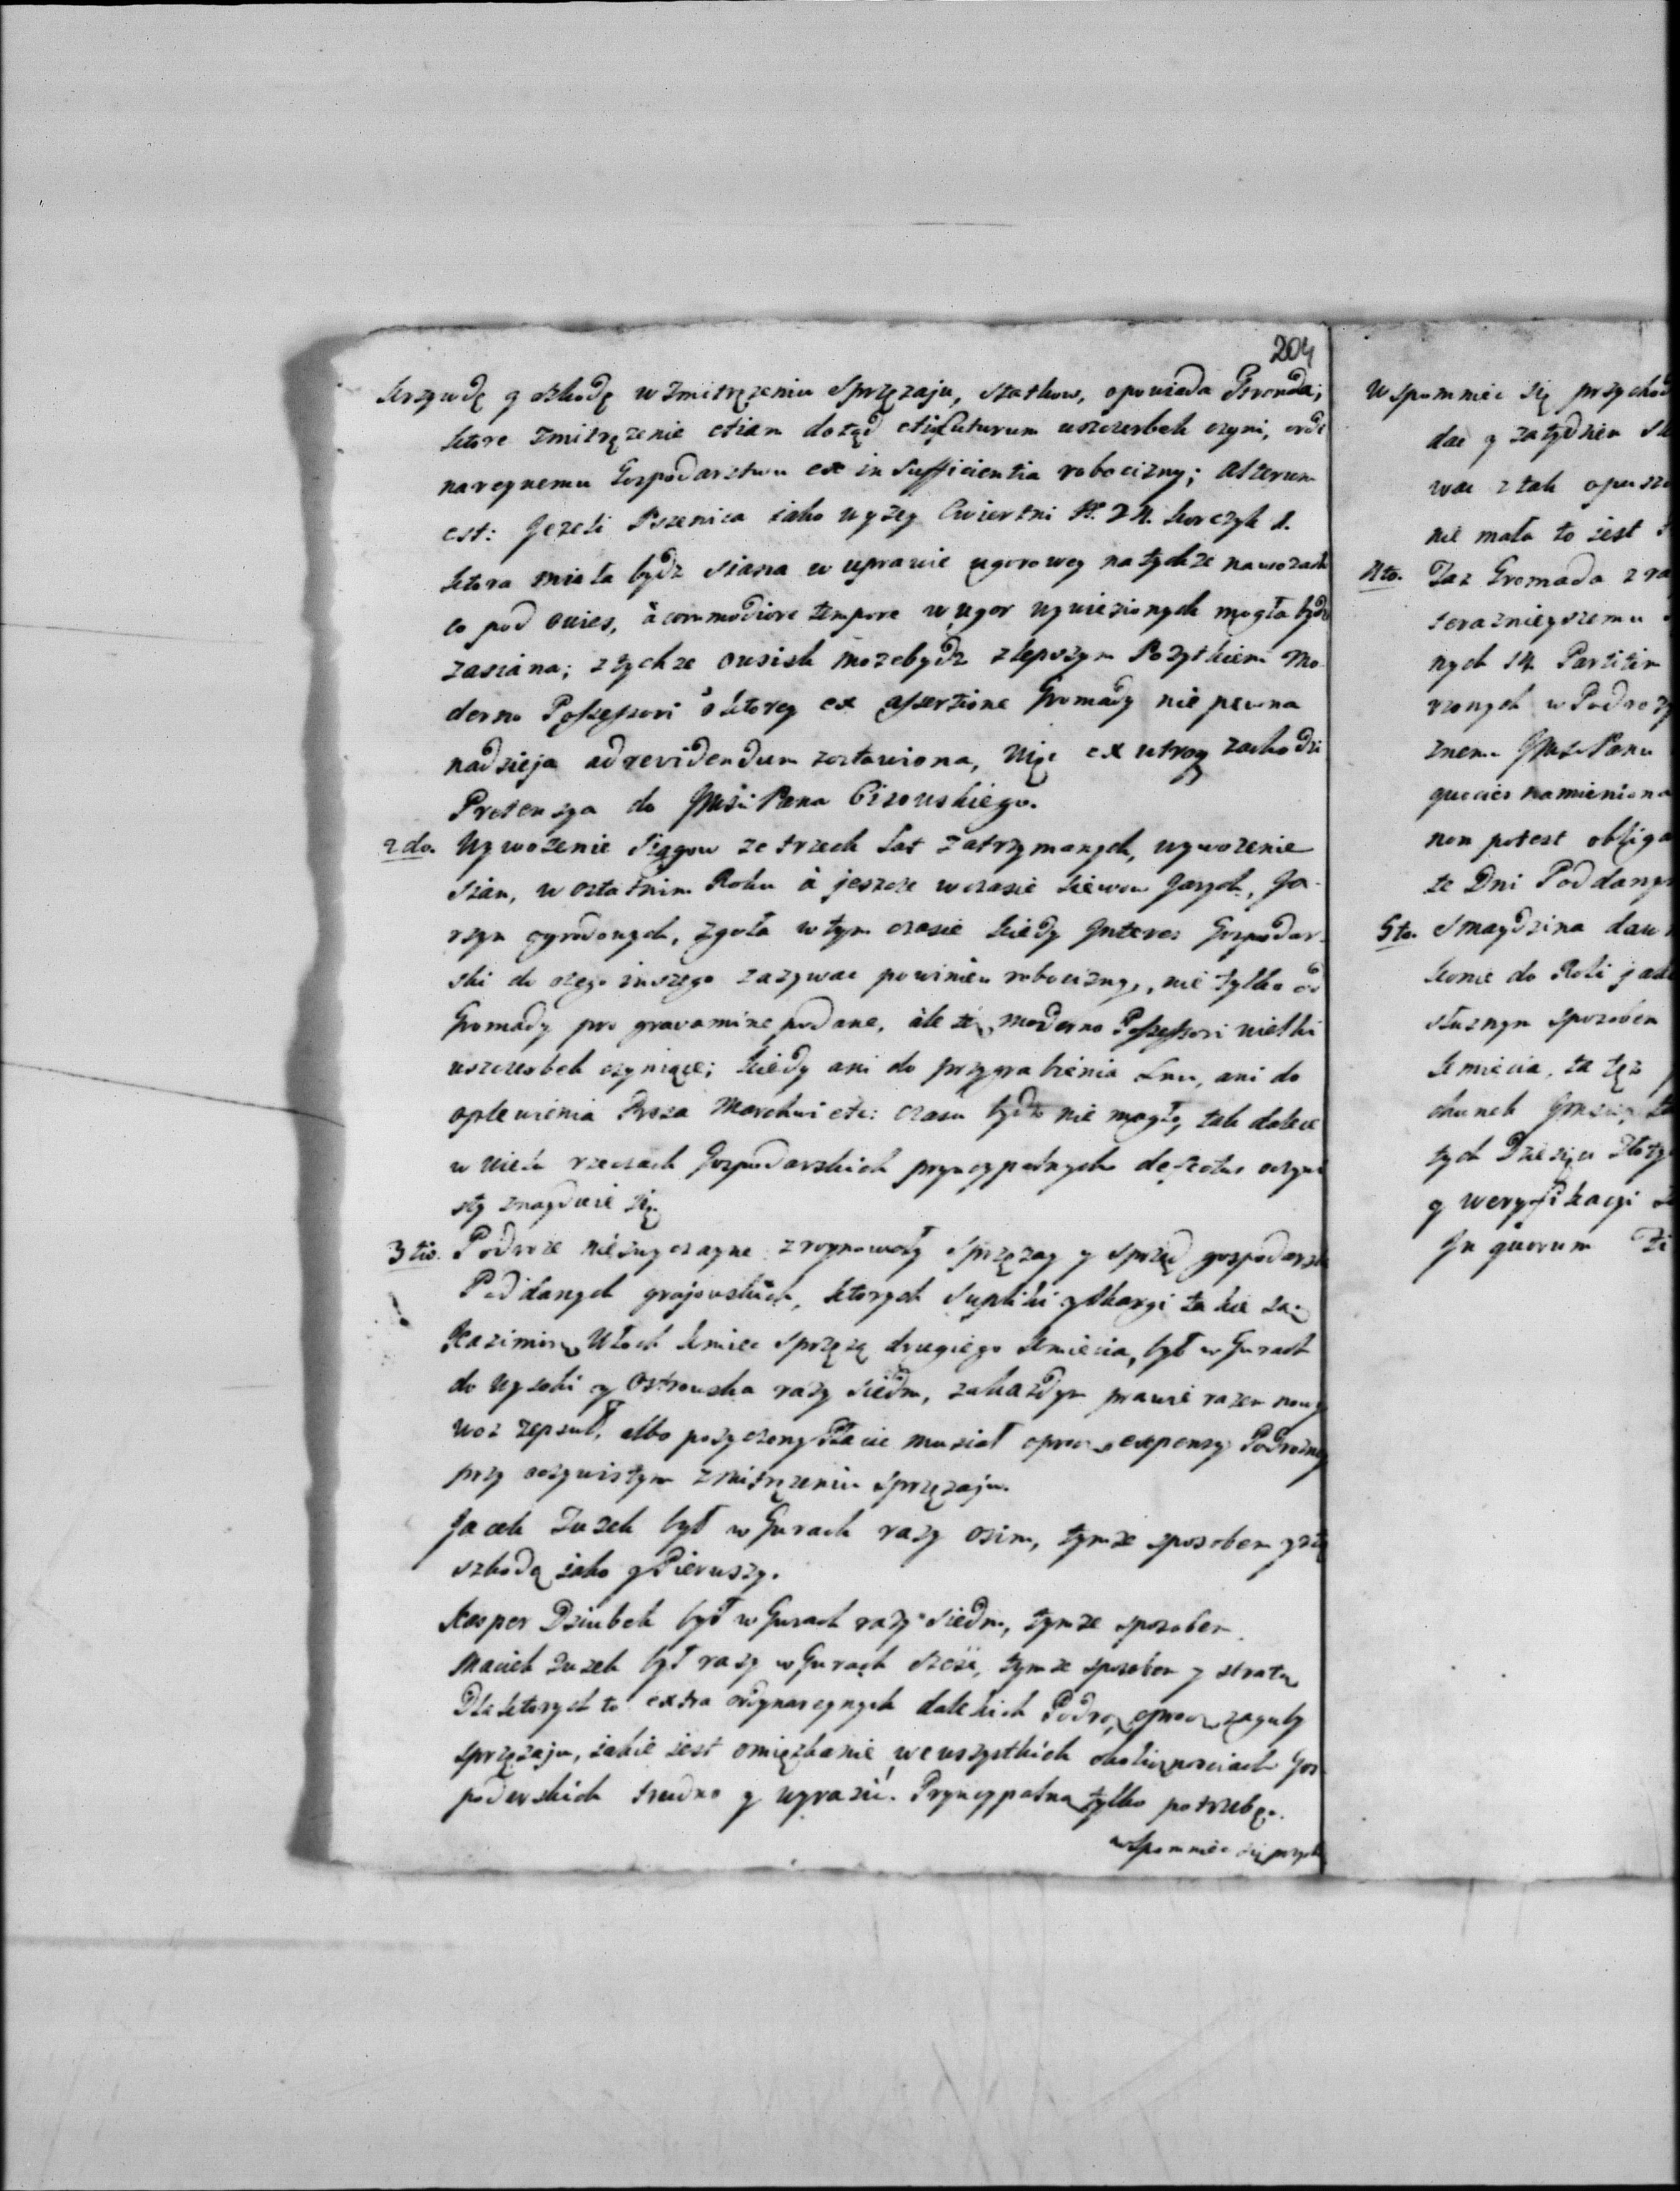 204
krzywdę y szkodę w zmitrężeniu Sprzężaju, statkow, opowiada Gromada;
ktore zmitrężenie etiam dotąd et in futurum uszczerbek czyni, ordi
naryynemu Gospodarstwu ex insufficientia robocizny; alterum
est: Jezeli Pszenica iako wyzey Cwiertni N. 24. korczyk 1.
ktora miała bydz siana w uprawie ugorowey na tychze nawozach
co pod owies, à commodiore tempore w ugor wywiezionych mogła bydz
zasiana; z tychze owsisk moze bydz z lepszym Pozytkiem Mo-
derno Possessori o ktorey ex assertione Gromady nie pewna
nadzieja ad revidendum zostawiona, więc ex utroq zachodzi
Pretensya do Jmści Pana Cizowskiego.
2do. Wywozenie Siągow ze trzech Lat zatrzymanych, wywozenie
Sian, w ostatnim Roku à jeszcze w czasie siewow Jarych, Ja-
rzyn ogrodowych, zgoła w tym czasie kiedy Interes Gospodar-
ski do czego inszego zazywac powinien robocizny, nie tylko od
Gromady pro gravamine podane, ale tez moderno Possessori wielki
uszczerbek czyniące; kiedy ani do przygrabienia Lnu, ani do
oplewienia Prosa Marchwi etc: czasu bydz nie mogło, tak dalece
w wielu rzeczach Gospodarskich pryncypalnych defectus oczywi
sty znayduie się.
3tio. Podroze niezwyczayne zruynowały sprzęzay y sprzęd gospodarsk
Poddanych grajowskich, ktorych Supliki y skargi takie są
Kazimierz Włoch kmiec sprzęzą drugiego kmiecia, był w Gurach
do Wysoki y Ostrowska razy siedm, za kazdym prawie razem nowy
woz zepsuł, albo pozyczony płacic musiał oprocz expensy Podrozney
przy oczywistym zmitręzeniu sprzęzaju.
Jacek Zuzek był w Gurach razy osim, tymze sposobem y z tą
szkodą iako y Pierwszy.
Kasper Dziubek był w Gurach razy siedm, tymze sposobem.
Maciek Zuzek był razy w Gurach sześć, tymze sposobem y stratą
Dla ktorych to extra ordynaryynych dalekich Podroz oprocz zaguby
sprzęzaju, iakie iest omięszkanie we wszystkich okolicznosciach gos
podarskich trudno y wyrazić. Pryncypalną tylko potrzebę
wspomniec się przych
Wspomniec się przychod
dac y za tydzien
wac z tak opusz
nie mała to iest
4to. Taz Gromada z ra
teraznieyszemu
nych 14. Partitim
rzonych w Podrozy
znemu Jmści Panu
quocies namieniona
non potest obliga
te Dni Poddanym
5to. Smaydzina daw
konie do Roli jad
słusznym sposobem
kmiecia, ta tęz
chunek
tych Dziesięc Złoty
y weryfikacyi
In quorum